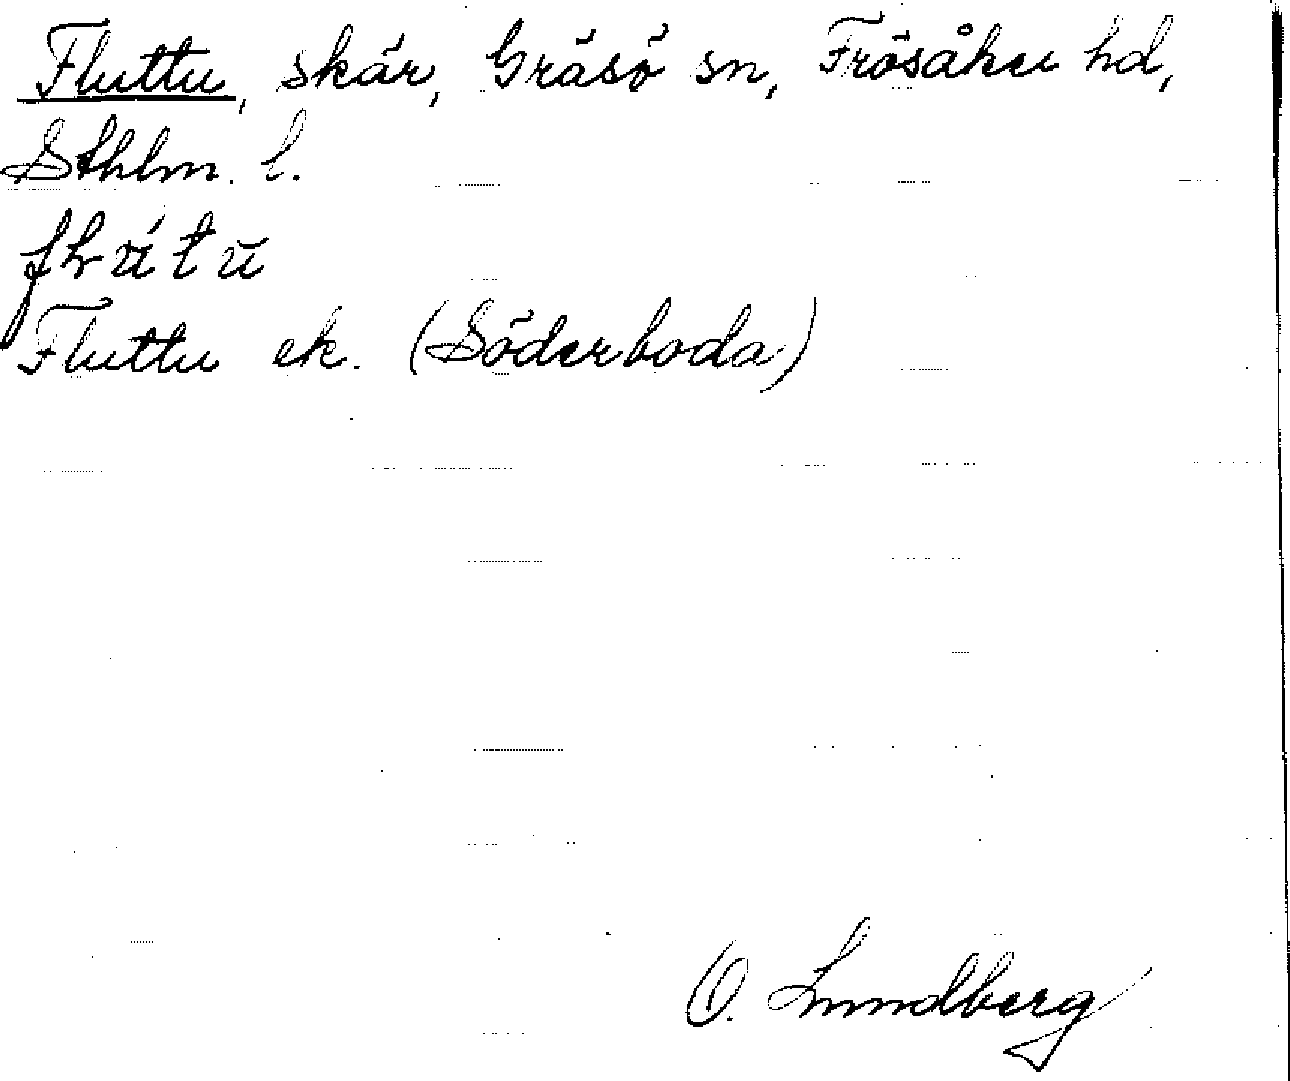 Fluttu, skär, Gräsö sn, Frösåker hd,
Sthlm. l.
Fluttu ek. (Söderboda)
O. Lundberg